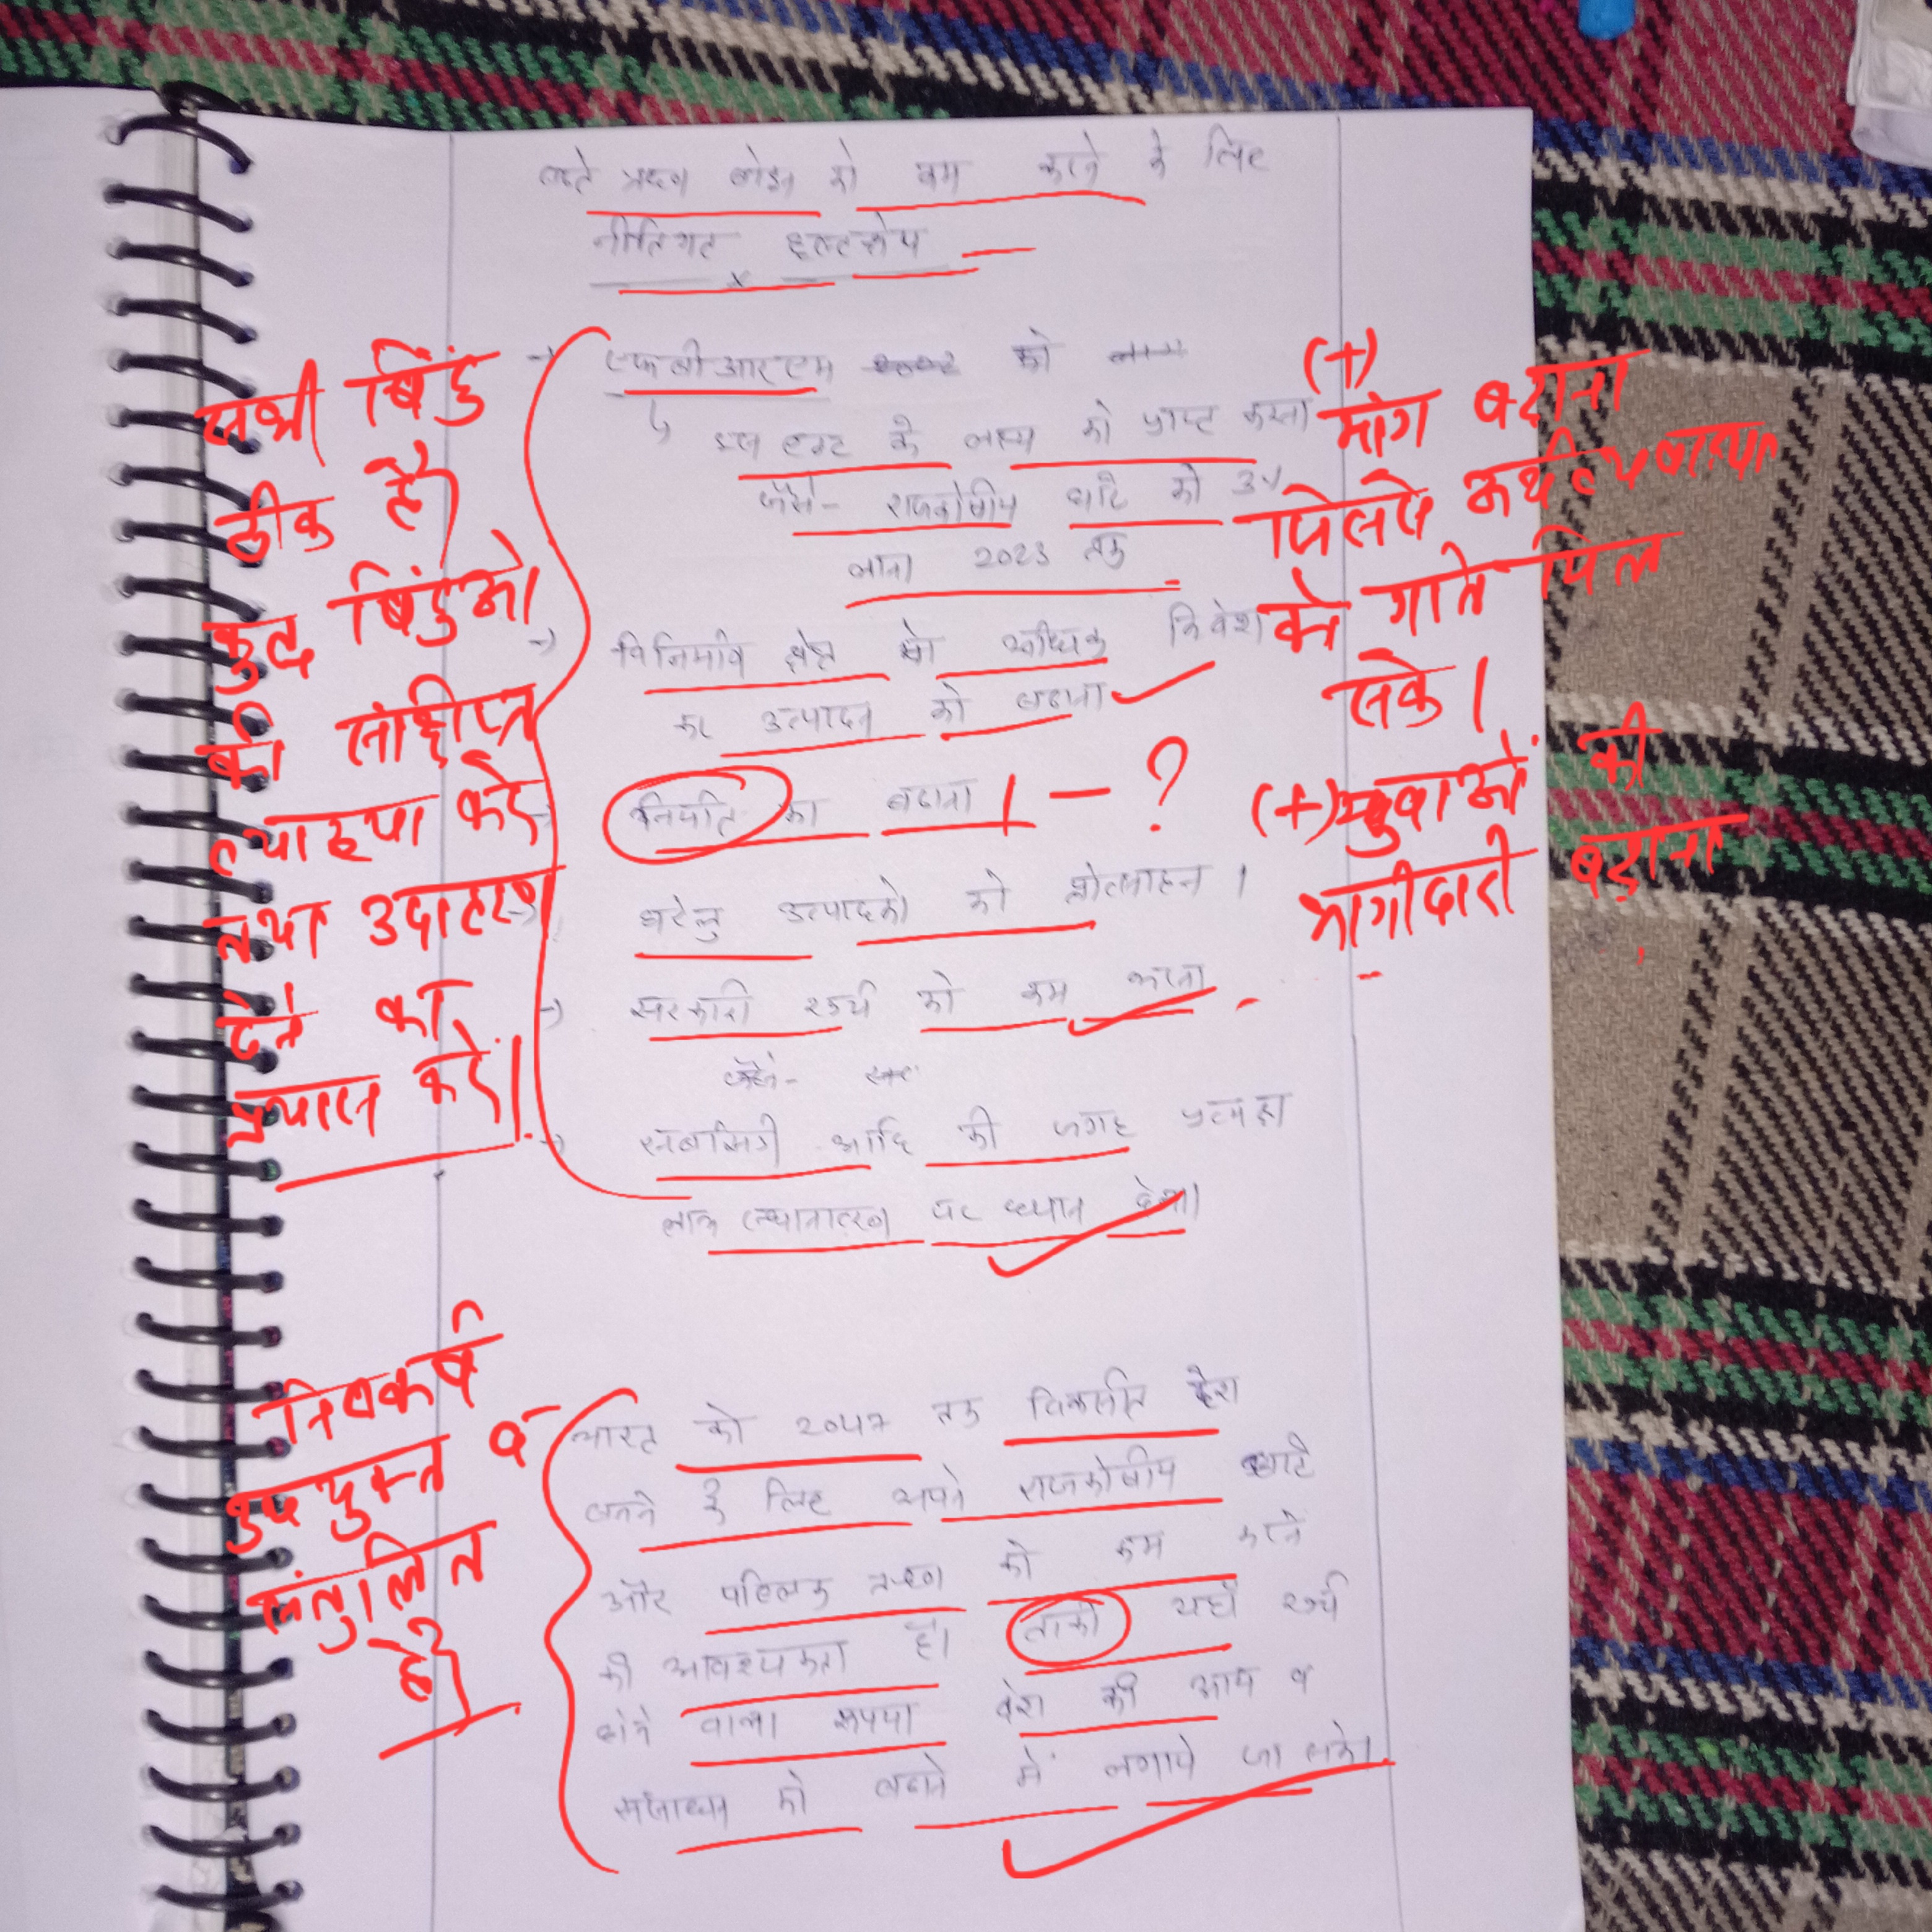 को कम करने के लिए
नीतिगत हस्तक्षेप
एफबीआरएम को
के लक्ष्य को प्राप्त करना
जैसे- राजकोषीय घाटे को 3%
लाना 2023 तक
विनिर्माण क्षेत्र को अधिक निवेश
कर उत्पादन को बढाना
निर्यात को बढाना
घरेलु उत्पादको को प्रोत्साहन ।
सरकारी खर्च को कम करना
जैसे-
सब्सिडी आदि की जगह प्रत्यक्ष
लाभ स्थानातरण पर ध्यान देना।
भारत को 2047 तक विकसित देश
बनने के लिए अपने राजकोषीय घाटे
और पब्लिक ऋण को कम करने
की आवश्यकता है। ताकी यहाँ खर्च
होने वाला रूपया देश की आय व
संसाधन को बढाने में लगाये जा सके।
सभी बिंदु
ठीक है।
कुछ बिंदुओं
की संक्षिप्त
व्याख्या करें
तथा उदाहरण
देने का
प्रयास करें।
निष्कर्ष
उपयुक्त व
संतुलित
है।
(+)
मांग बढ़ाना
जिससे अर्थव्यवस्था
को गति मिल
सके।
– ?
(+) युवाओं की
भागीदारी बढ़ाना